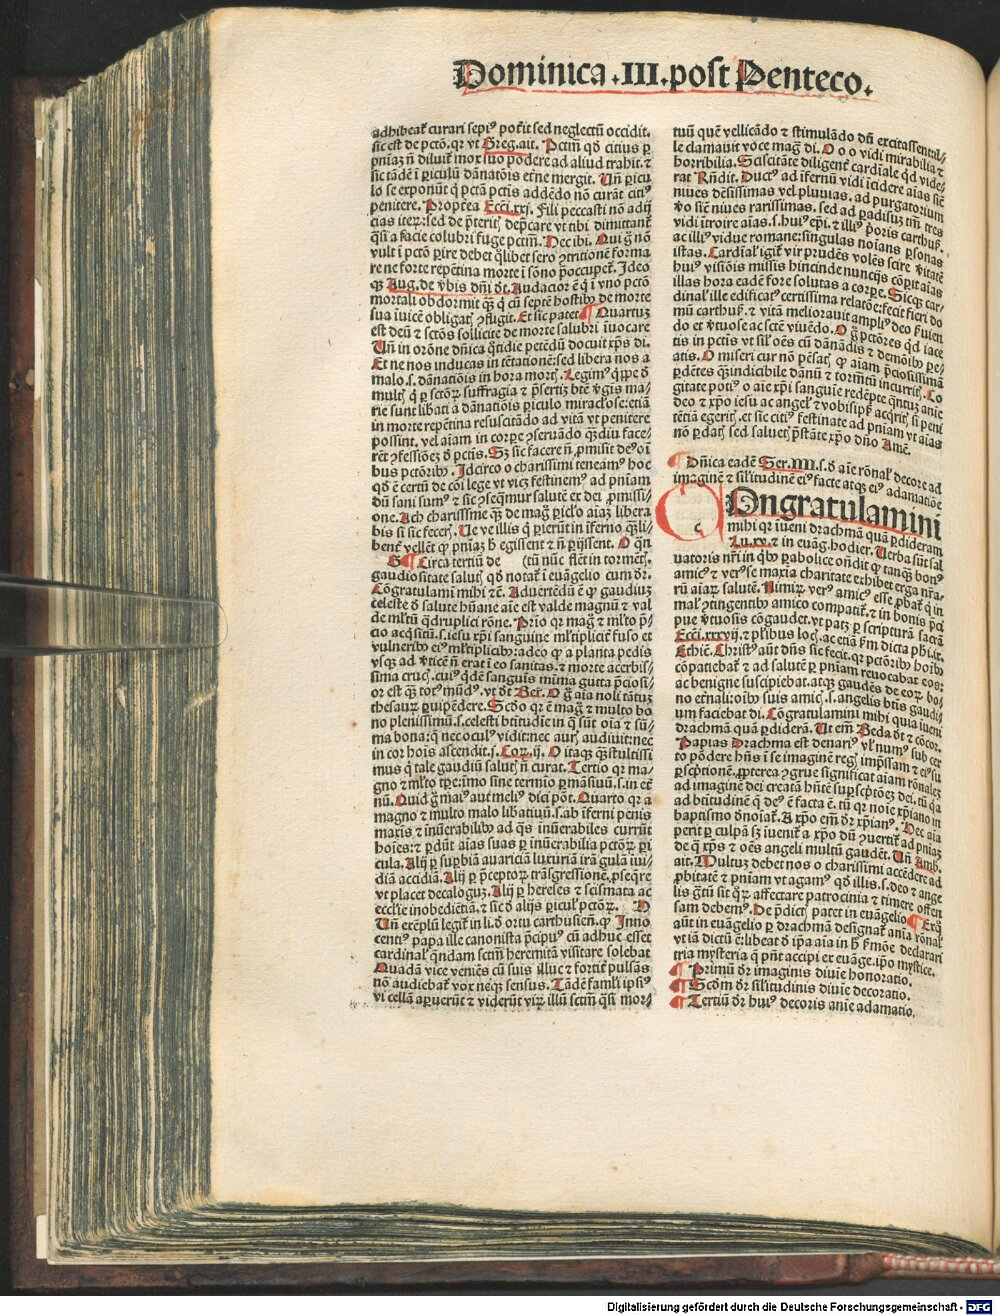 Dominica .III. post Penteco.
adhibeat᷑ curari sepiꝰ potͥit sed neglectū occidit.
sic est de pctō. qꝛ vt Greg. ait. Pctm̄ qđ citius ꝑ
pniaꝫ nō diluit᷑ mox suo pōdere ad aliud trahit. ⁊
sic tādē ī ꝑiculū dānatōis etͥne mergit. Uñ ꝑicu
lo se exponūt qͥ pctā pctis addēdo nō curāt citiꝰ
penitere. Propterea Ecci.xxj. Fili peccasti nō adij
cias iteꝝ: sed de pͥterit᷑ dep̄care vt tibi dimittant᷑
qͣsi a facie colubri fuge pctm̄. Hec ibi. Qui gͦ nō
vult ī pctō ꝑire debet qͥlibet sero ꝯtritionē forma
re ne forte repētina morte ī sōno p̄occupet᷑. Ideo
qꝫ Aug. de v̄bis dn̄i dt̄. Audacior ē qͥ ī vno pctō
mortali obdormit qͣꝫ qͥ cū septē hostibꝰ de morte
sua īuicē obligat᷑ ꝯfligit. Et sic patet ¶ Quartuꝫ
est deū ⁊ sctōs sollicite de morte salubri īuocare
Uñ in orōne dn̄ica qͦtidie petēdū docuit xp̄s di.
Et ne nos inducas in tētationē: sed libera nos a
malo.s. dānatiōis in hora mort᷑. Legimꝰ qͥppe đ
mult᷑ qͥ ꝑ sctōꝝ suffragia ⁊ p̄sertiꝫ bt̄e v̄gīs ma-
rie sunt libati a dānatiōis ꝑiculo miraclōse: etiā
in morte repētina resuscitādo ad vitā vt penitere
possint. vel aīam in corꝑe ꝯseruādo qͣꝫdiu face-
rēt ꝯfessiōeꝫ đ pctis. Sꝫ sic facere nō ꝓmisit deꝰ oī
bus pctōribꝰ. Idcirco o charissimi teneamꝰ hoc
qđ ē certū de cōi lege vt vicꝫ festinemꝰ ad pniam
dū sani sumꝰ ⁊ sic ꝯseqͣmur salutē ex dei ꝓmissi-
one. Ach charissime qͣꝫ de mag᷑ ꝑiclō aīaꝫ libera
bis si sic fecer᷑. Ue ve illis qͥ ꝑierūt in īferno. qͣꝫ li-
bent᷑ vellēt qͦ pniaꝫ h̄ egissent ⁊ nō ꝑijssent. O qn̄
B ¶ Circa tertiū de (tū nūc flēt in tormēt᷑.
gaudiositate salut᷑ qđ notat᷑ ī euāgelio cum dr̄.
Cōgratulami mihi ⁊c̄. Aduertēdū ē qͦ gaudiuꝫ
celeste đ salute hūane aīe est valde magnū ⁊ val
de ml̄tū qͣdruplici rōne. Prīo qꝛ mag᷑ ⁊ ml̄to p̄-
cio acqͥsitū.s. iesu xp̄i sanguine ml̄tiplicit᷑ fuso et
vulneribꝰ eiꝰ ml̄tiplicibꝰ: adeo qͦ a planta pedis
vsqꝫ ad v̄ticē nō erat ī eo sanitas. ⁊ morte acerbis-
sima cruc᷑. cuiꝰ qͥdē sanguīs mīma gutta p̄ciosi-
or est qͣꝫ totꝰ mūdꝰ. vt dt̄ Ber. O gͦ aīa noli tātuꝫ
thesauꝝ ꝑuipēdere. Scđo qꝛ ē mag᷑ ⁊ multo bo
no plenissimū.s. celesti btītudīe in qͣ sūt oīa ⁊ sū-
ma bona: qͥ nec oculꝰ vidit: nec aur᷑ audiuit: nec
in cor hoīs ascendit.j. Coꝝ.ij. O itaqꝫ qͣꝫ stultissi
mus qͥ tale gaudiū salut᷑ nō curat. Tertio qꝛ ma-
gno ⁊ ml̄to tꝑe: īmo sine termio ꝑmāsiuū.s. in et͞
nū. Quid gͦ maiꝰ aut meliꝰ dici pōt. Quarto qꝛ a
magno ⁊ multo malo libatiuū.s. ab īferni penis
maxīs ⁊ īnūerabilibꝰ ad qͣs īnūerabiles currūt
hoīes: ⁊ ꝑdūt aīas suas ꝑ īnūerabilia pctōꝝ ꝑi
cula. Alij ꝑ suꝑbiā auariciā luxuriā irā gulā īui-
diā accidiā. Alij ꝑ p̄ceptoꝝ trāsgressionē. ꝓseqͥre
vt placet decaloguꝫ. Alij ꝑ hereses ⁊ scismata ac
eccl̄ie inobediētiā. ⁊ sic đ alijs ꝑiculꝭ pctōꝝ. D
Uñ exēplū legit᷑ in li. đ ortu carthusieñ. qͦ Inno
centiꝰ papa ille canonista p̄cipuꝰ cū adhuc esset
cardinalꝭ qͦndam sctm̄ heremitā visitare solebat
Quadā vice veniēs cū suis illuc ⁊ fortit᷑ pulsās
nō audiebat᷑ vox neqꝫ sensus. Tādē famlī ipsiꝰ
vi cellā aꝑuerūt ⁊ viderūt viꝝ illū sctm̄ qͣsi mor-
tuū quē vellicādo ⁊ stimulādo dū excitassent al-
le clamauit voce mag᷑ di. O o o vidi mirabilia ⁊
horribilia. Suscitāte diligent᷑ cardiale qđ vide-
rat Rn̄dit. Ductꝰ ad īfernū vidi īcidere aīas sic̄
niues dēsissimas vel pluuias. ad purgatorium
vo sic̄ niues rarissimas. sed ad ꝑadisuꝫ tm̄ tres
vidi ītroire aīas.s. huiꝰ ep̄i. ⁊ illiꝰ p̄oris carthuꝭ.
ac illiꝰ vidue romane: singulas noīans ꝑsonas
istas. Cardīal᷑ igit᷑ vir prudēs volēs scire v̄itatē
huiꝰ visiōis missis hincinde nuncijs cōꝑit aīas
illas hora eadē fore solutas a corꝑe. Sicqꝫ car-
dinal᷑ ille edificatꝰ certissima relatōe: fecit fieri do
mū carthuꝭ. ⁊ vitā meliorauit ampliꝰ deo ẜuien
do et v̄tuose ac sctē viuēdo. O gͦ pctōres qͥd iace
tis in pctis vt sil᷑ oēs cū dānādis ⁊ demōibꝰ ꝑe-
atis. O miseri cur nō pēsat᷑ qͦ aīam p̄ciosissimā
ꝑdētes qͣꝫ indicibile dānū ⁊ tormētū incurrit᷑. Co
gitate potiꝰ o aīe xp̄i sanguie redēpte qͣntuꝫ anīe
deo ⁊ xp̄o iesu ac angelꝭ ⁊ vobisipꝭ acqͥrit᷑ si peni
tētiā egerit᷑. et sic citiꝰ festinate ad pniam vt aīas
nō ꝑdat᷑ sed saluet᷑ p̄stāte xp̄o dn̄o Amē.
¶ Dn̄ica eadē Ser.IIII.s. đ aīe rōnal᷑ decore ad
imaginē ⁊ sil᷑itudinē eiꝰ facte atqꝫ eiꝰ adamatiōe
COngratulamini
mihi qꝛ īueni drachmā quā ꝑdideram
Lu.xv. ⁊ in euāg. hodier. Uerba sūt sal
uatoris nr̄i in qͥbꝰ ꝑabolice on̄dit qͦ tanqͣꝫ bonꝰ
amicꝰ ⁊ verꝰ se maxia charitate exhibet erga nr̄a-
rū aīaꝝ salutē. Nimiꝝ verꝰ amicꝰ esse ꝓbat᷑ qͥ in
malꝭ ꝯtingentibꝰ amico compatit᷑. ⁊ in bonis p̄ci
pue v̄tuosis cōgaudet. vt patꝫ ꝑ scripturā sacrā
Ecci.xxxvij. ⁊ pl̄ribus loc᷑. ac etiā ẜm dicta ph̄i.it.
Ethic̄. Christꝰ aūt dn̄s sic fecit. qꝛ pctōribꝰ hoībꝰ
cōpatiebat᷑ ⁊ ad salutē ꝑ pniam reuocabat eos:
ac benigne suscipiebat. atqꝫ gaudēs de eoꝝ bo-
no et͞nali: oībꝰ suis amic᷑.s. angelis btīs gaudi-
um faciebat di. Cōgratulamini mihi quia īueni
drachmā quā ꝑdiderā. Ut em̄ Beda dt̄ ⁊ cōcoꝛ.
Papias Drachma est denariꝰ vl̄ numꝰ sub cer
to pōdere hn̄s ī se imaginē reg᷑ imp̄ssam ⁊ eiꝰ su
ꝑscṕtionē. ꝓpterea ꝯgrue significat aīam rōnalēꝫ
ad imaginē dei creatā hn̄tē suꝑscṕtōeꝫ dei. tū qͣ
ad btītudinē qͥ deꝰ ē facta ē. tū qꝛ noīe xp̄iano in
baptismo đnoīat᷑. A xp̄o em̄ dr̄ xp̄ianꝰ. Hec aīa
perit ꝑ culpā sꝫ īuenit᷑ a xp̄o dū ꝯuertit᷑ ad pniaꝫ
de qͣ xp̄s ⁊ oēs angeli multū gaudēt. Uñ Amb.
ait. Multuꝫ debet nos o charissimi accēdere ad
ꝓbitatē ⁊ pniam vt agamꝰ qđ illis.s. deo ⁊ ange
lis gͣtū sit qͦꝝ affectare patrocinia ⁊ timere offen
sam debemꝰ. De p̄dict᷑ patet in euāgelio ¶ Exqͦ
aūt in euāgelio ꝑ drachmā designat᷑ anīa rōnal᷑
vt iā dictū ē: libeat đ ip̄a aīa in ħ ẜmōe declarari
tria mysteria qͥ pn̄t accipi ex euāge. ip̄o mystice.
¶ Primū dr̄ imaginis diuīe honoratio.
¶ Scđm dr̄ sil᷑itudinis diuīe decoratio.
¶ Tertiū dr̄ huiꝰ decoris anīe adamatio.
Digitalisierung gefördert durch die Deutsche Forschungsgemeinschaft - DFG